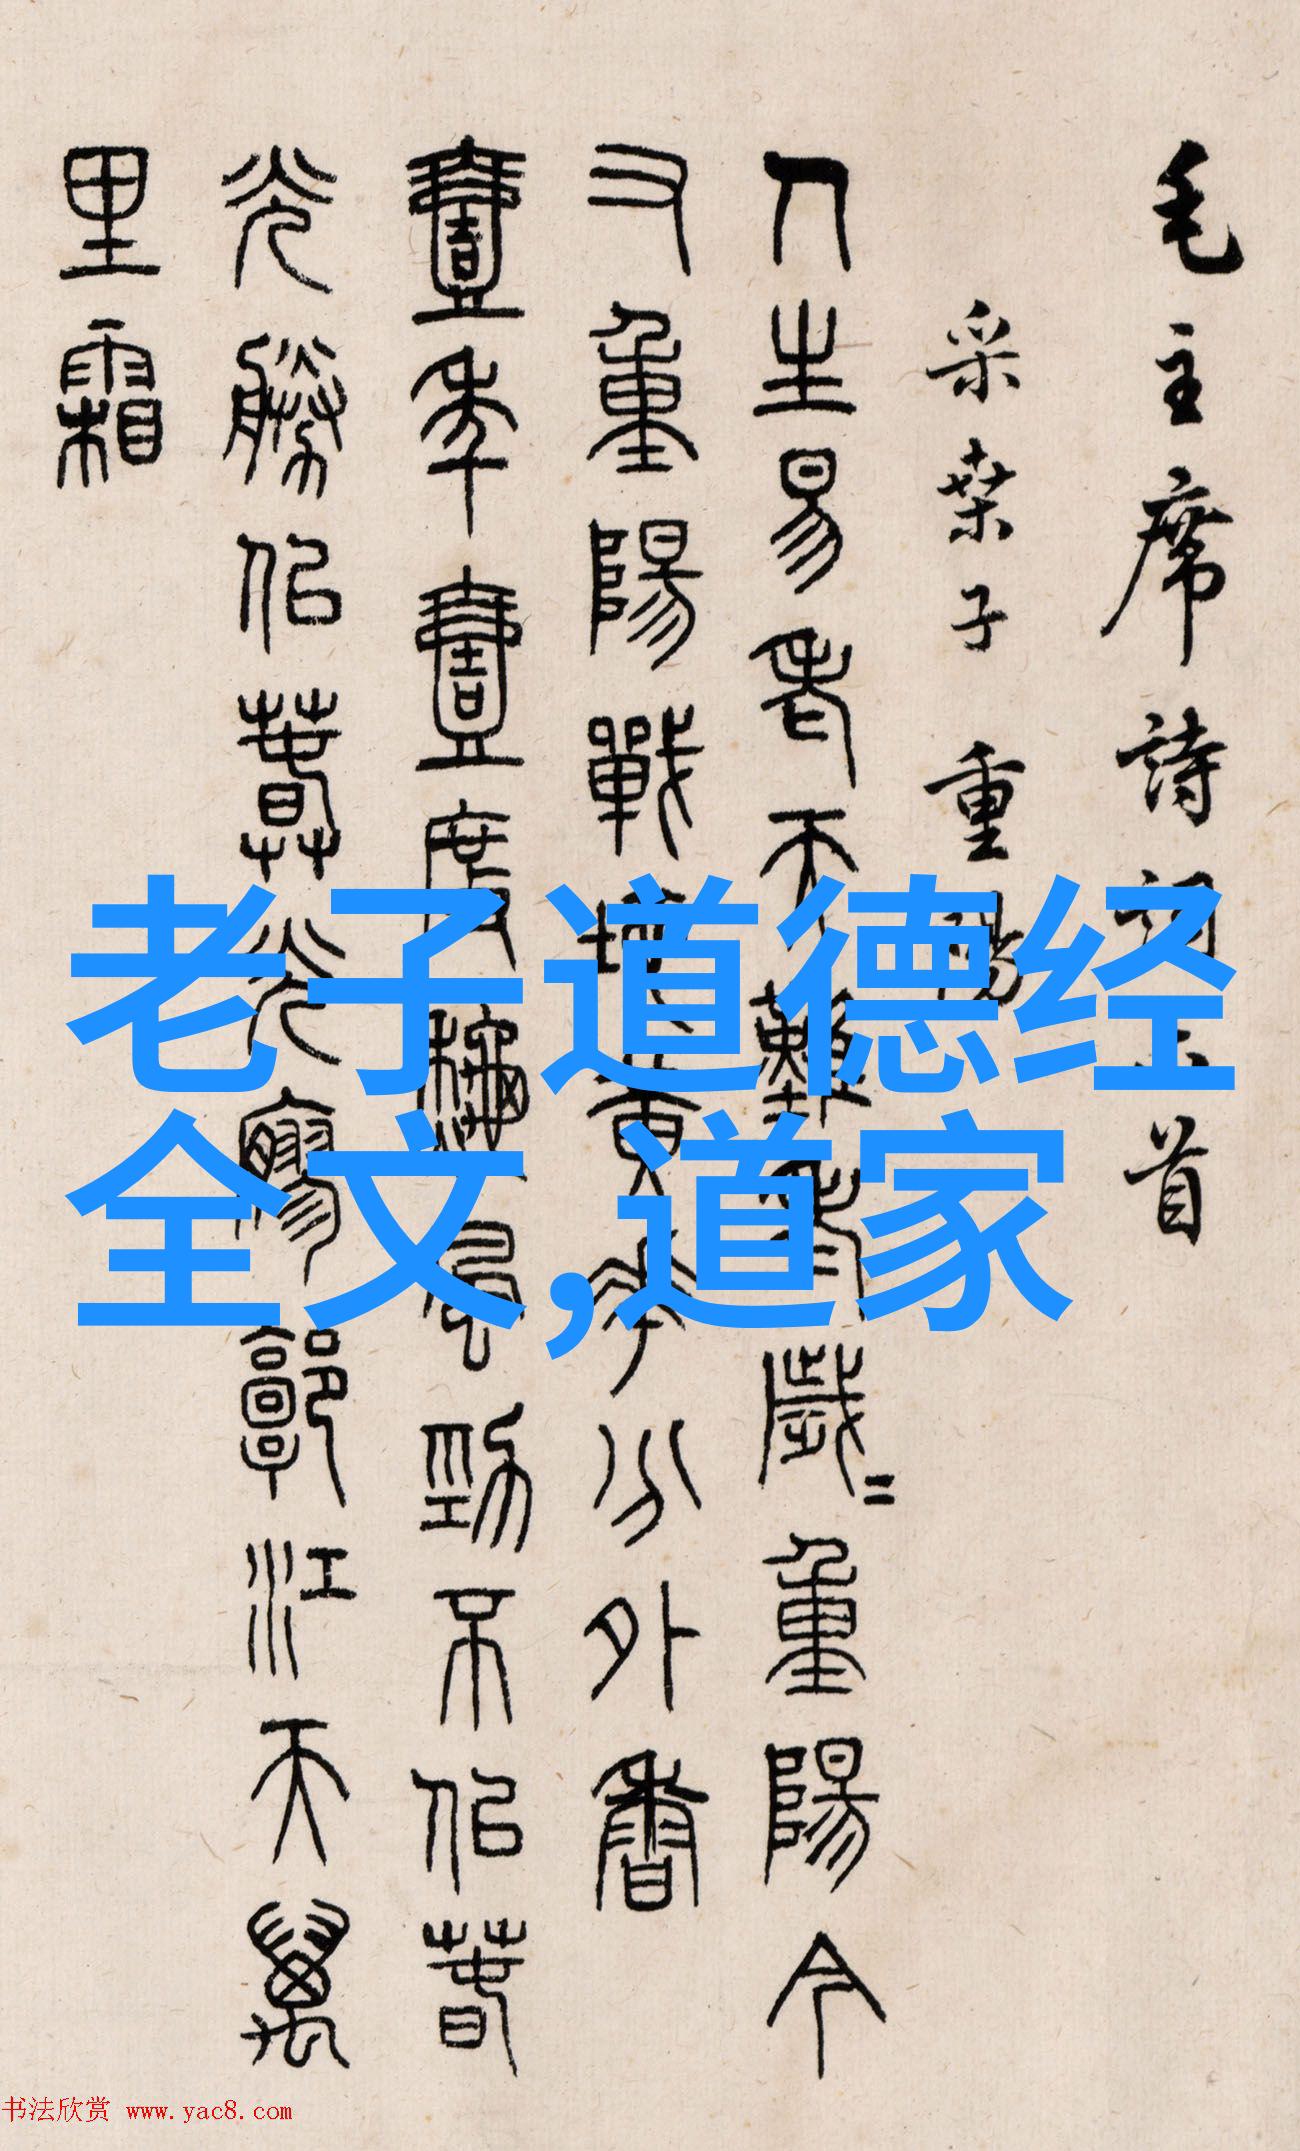 毛主席詩詞首
采桒子 重陽
人生易老天難老歲〻重陽今
又重陽戰地黃華分外香
壹年壹度穐風勁不佀春
光勝佀春光寥郭江天萬
里霜
老子道德经
全文,道家
书法欣赏 www.yac8.com